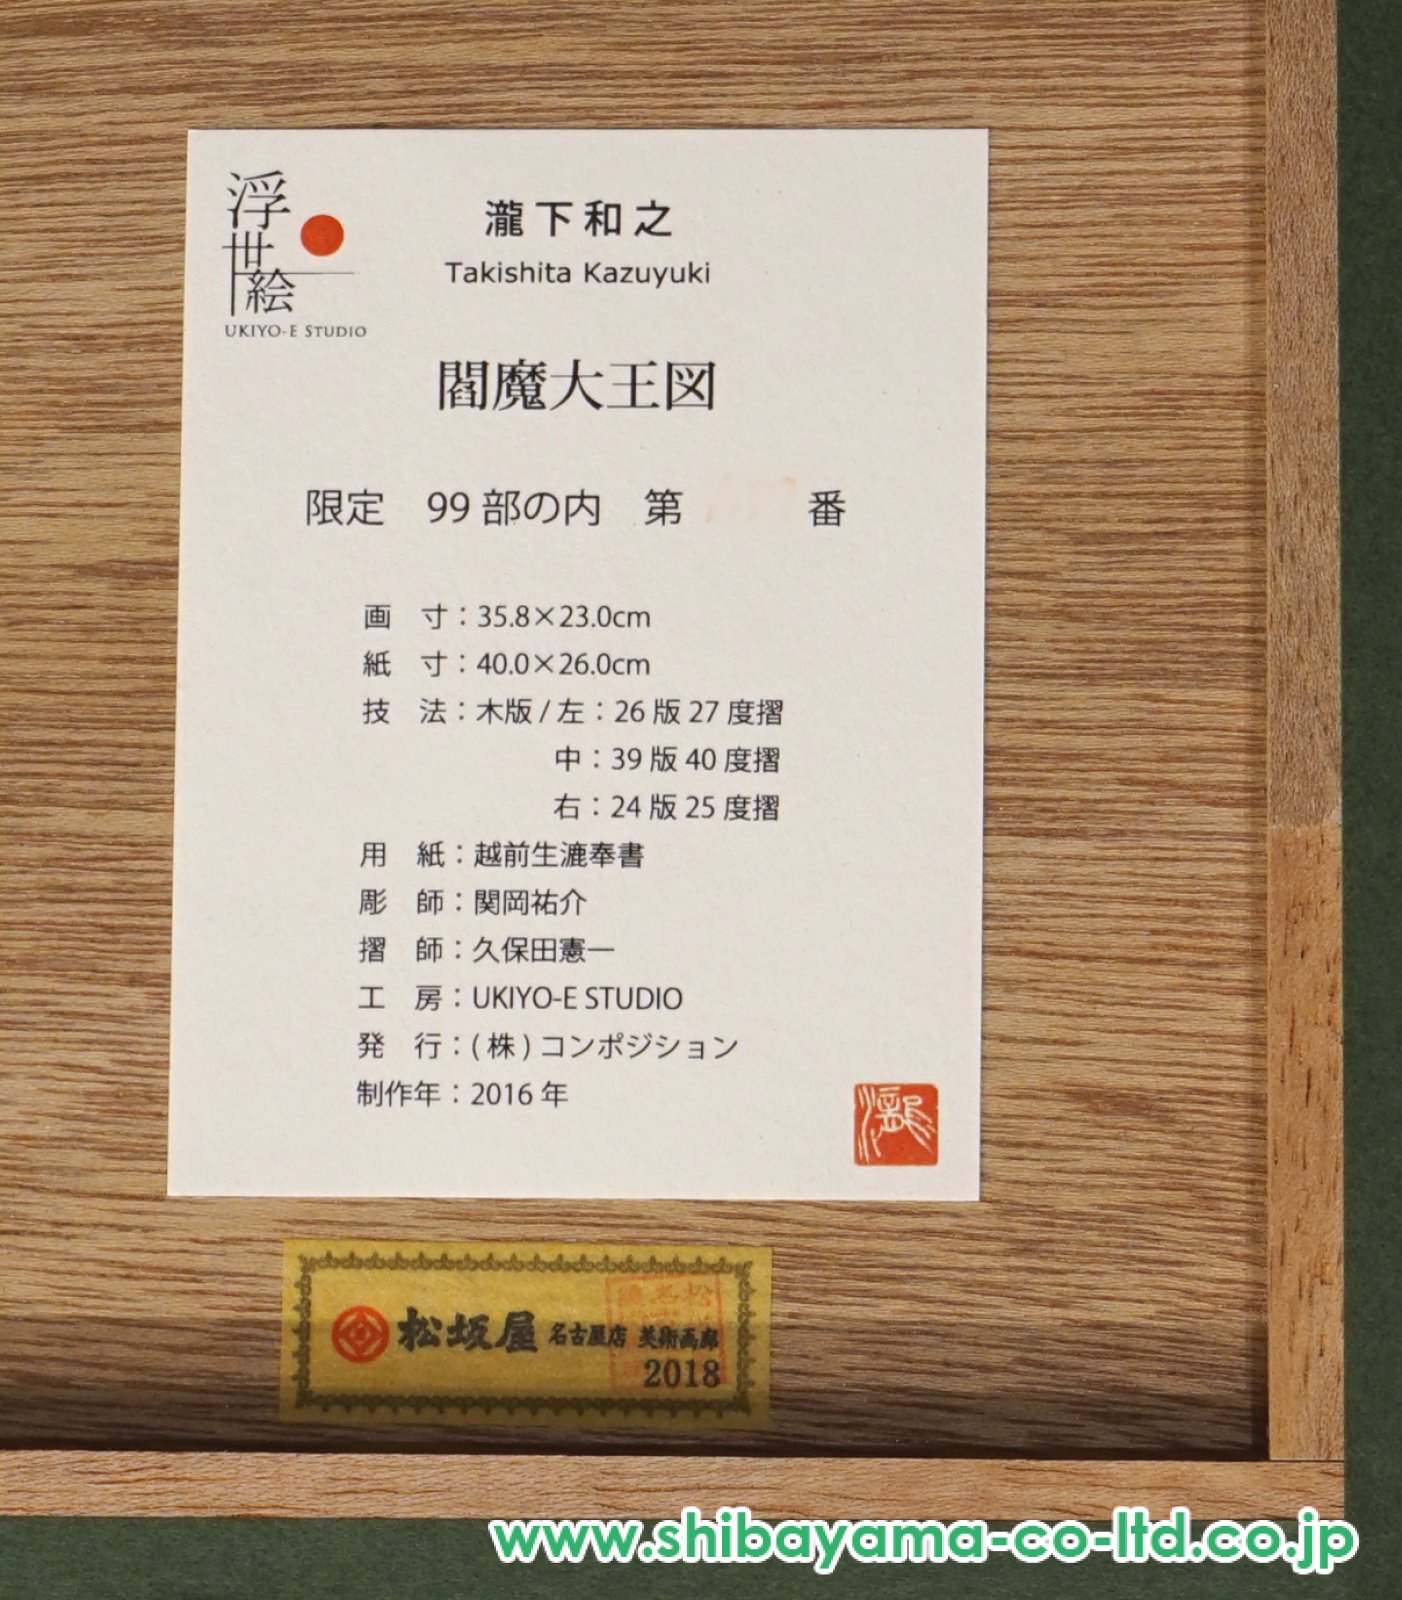 浮世絵
UKIYO-E STUDIO
瀧下和之
Takishita Kazuyuki
閻魔大王図
限定 99部の内 第 番
画 寸：35.8×23.0cm
紙 寸：40.0×26.0cm
技 法：木版/左：26版27度摺
中：39版40度摺
右：24版25度摺
用 紙：越前生漉奉書
彫 師：関岡祐介
摺 師：久保田憲一
工 房：UKIYO-E STUDIO
発 行：(株)コンポジション
制作年：2016年
瀧
松坂屋 名古屋店 美術画廊
2018
www.shibayama-co-ltd.co.jp